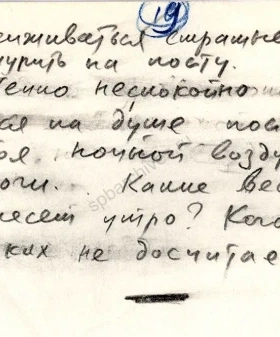 19
сиживаться страшне
курить на посту.
тенно неспокойно
ся на душе пос
бя ночной возду
ночи... Какие вес
несет утро? Кого
ких не досчитае